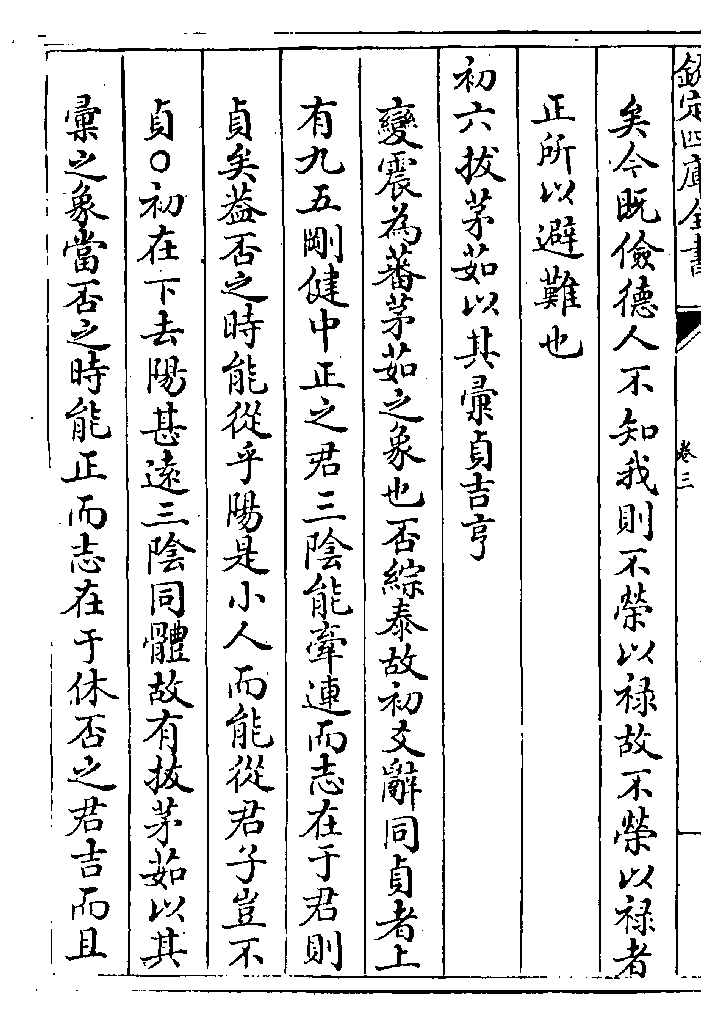 欽定四庫全書
卷三
矣今既儉德人不知我則不榮以祿故不榮以祿者
正所以避難也
初六拔茅茹以其彚貞吉亨
變震為蕃茅茹之象也否綜泰故初爻辭同貞者上
有九五剛健中正之君三陰能牽連而志在于君則
貞矣葢否之時能從乎陽是小人而能從君子豈不
貞○初在下去陽甚遠三陰同體故有拔茅茹以其
彚之象當否之時能正而志在于休否之君吉而且